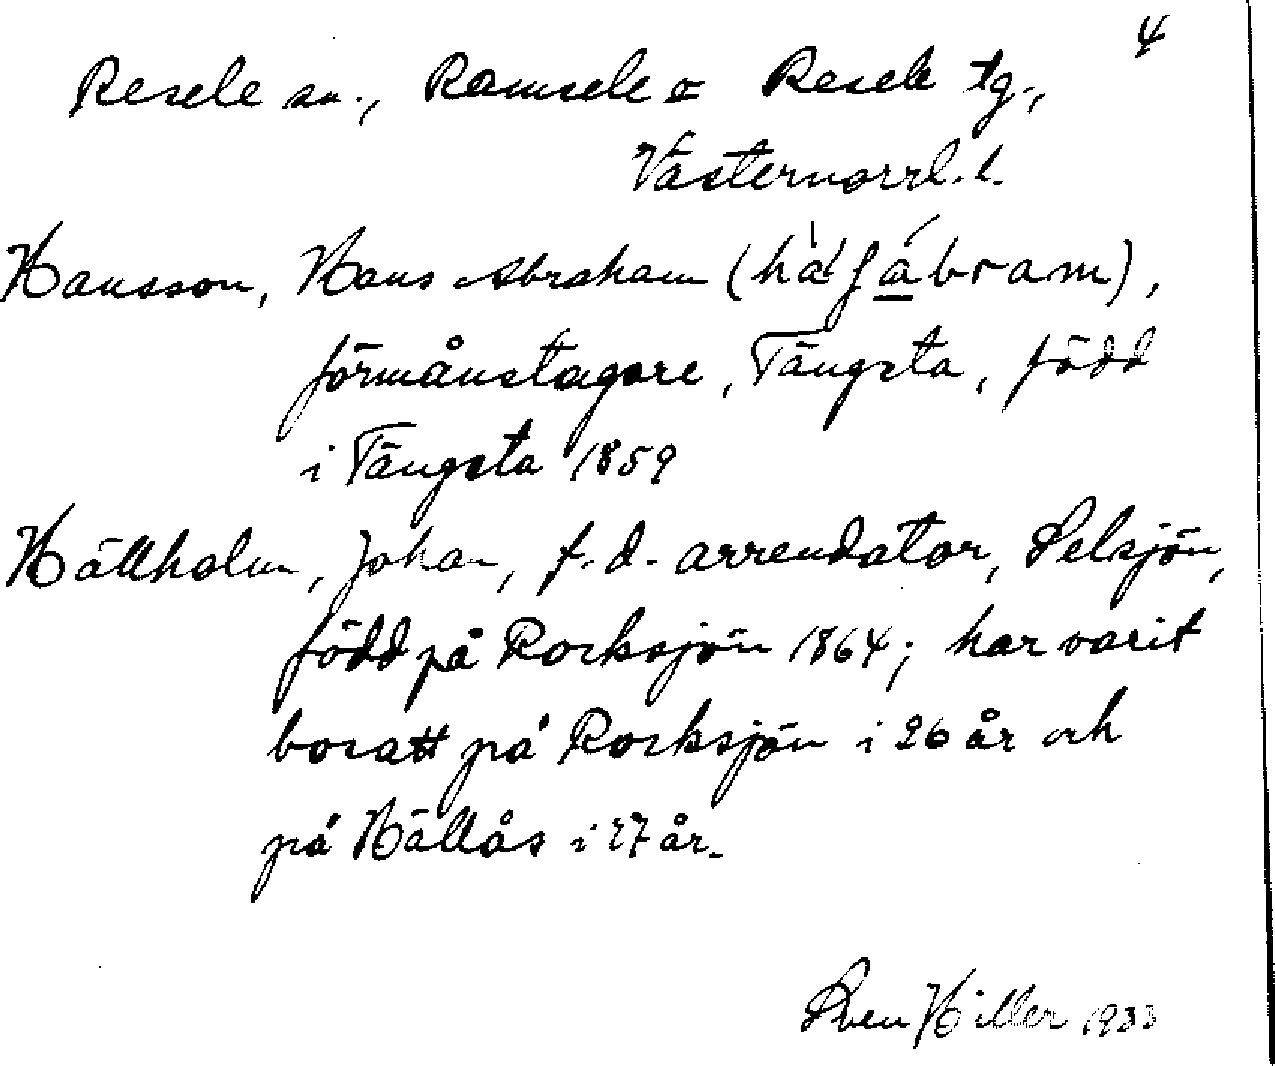 4
Resele sn., Ramsele o Resele tg.,
Västernorrl. l.
Hansson, Hans Abraham
förmånstagare, Tängsta, född
i Tängsta 1859
Hällholm, Johan, f.d. arrendator, Selsjön,
född på Rocksjön 1864; har varit
bosatt på Rocksjön i 26 år och
på Hällås i 27 år.
Sven Hiller 1933